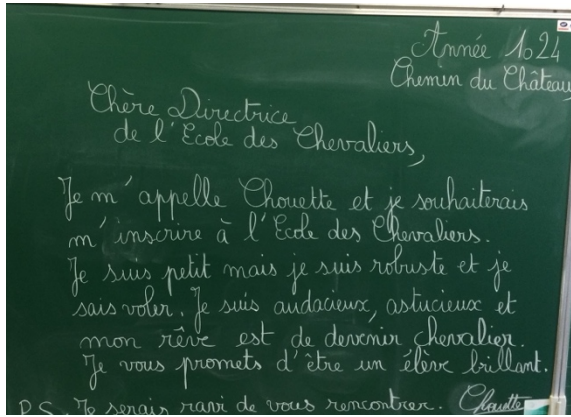 Année 1024
Chemin du Château
Chère Directrice
de l'Ecole des Chevaliers,
Je m'appelle Chouette et je souhaiterais
m'inscrire à l'Ecole des Chevaliers.
Je suis petit mais je suis robuste et je
sais voler. Je suis audacieux, astucieux et
mon rêve est de devenir chevalier.
Je vous promets d'être un élève brillant.
P.S. Je serais ravi de vous rencontrer. Chouette